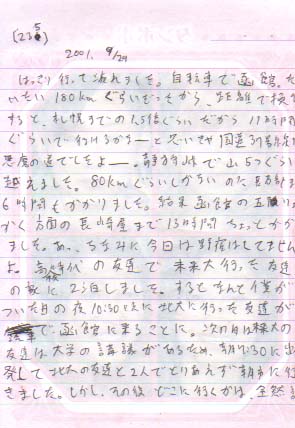 (235)
2001. 9/29
はっきり行って疲れました。自転車で函館。だ
いたい180kmぐらいだったから、距離で換算
すると、札幌までの1.5倍ぐらいだから11時間
ぐらいで行けるかなーと思いきや国道
悪の道でしたよー。峠で山5つぐらい
越えました。80kmぐらいしかないのに
6時間もかかりました。結果函館の五
かく方面の長崎屋まで13時間ちょっとかか
りました。あっ、ちなみに今日は野宿はしてません
よ。高校時代の友達で未来大行った友達
の家に2泊しました。するとなんと僕が
ついた日の夜10:30に北大に行った友達が
で函館に来ることに。次の日は未来大の
友達は大学の講義があるため、朝に出
発して北大の友達と2人でとりあえず朝市に行
きました。しかし、その後どこに行くかは全然